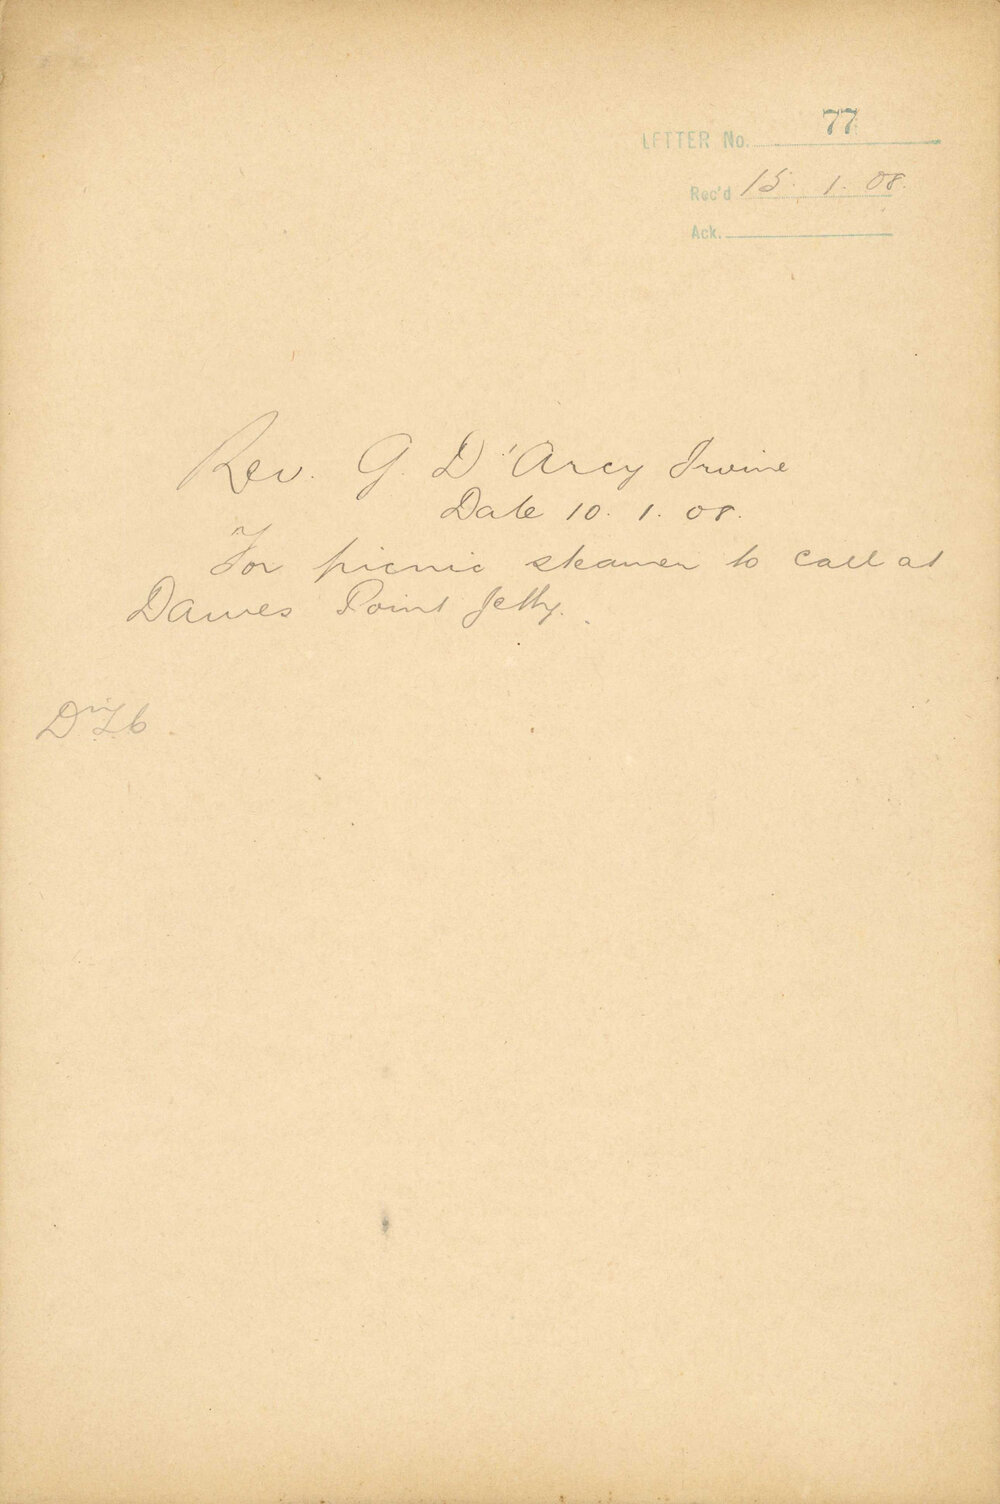 LETTER No. 77
Rec'd 15. 1. 08.
Ack.
Rev. G. D'Arcy Irvine
Date 10. 1. 08.
For picnic steamer to call at
Dawes Point Jetty.